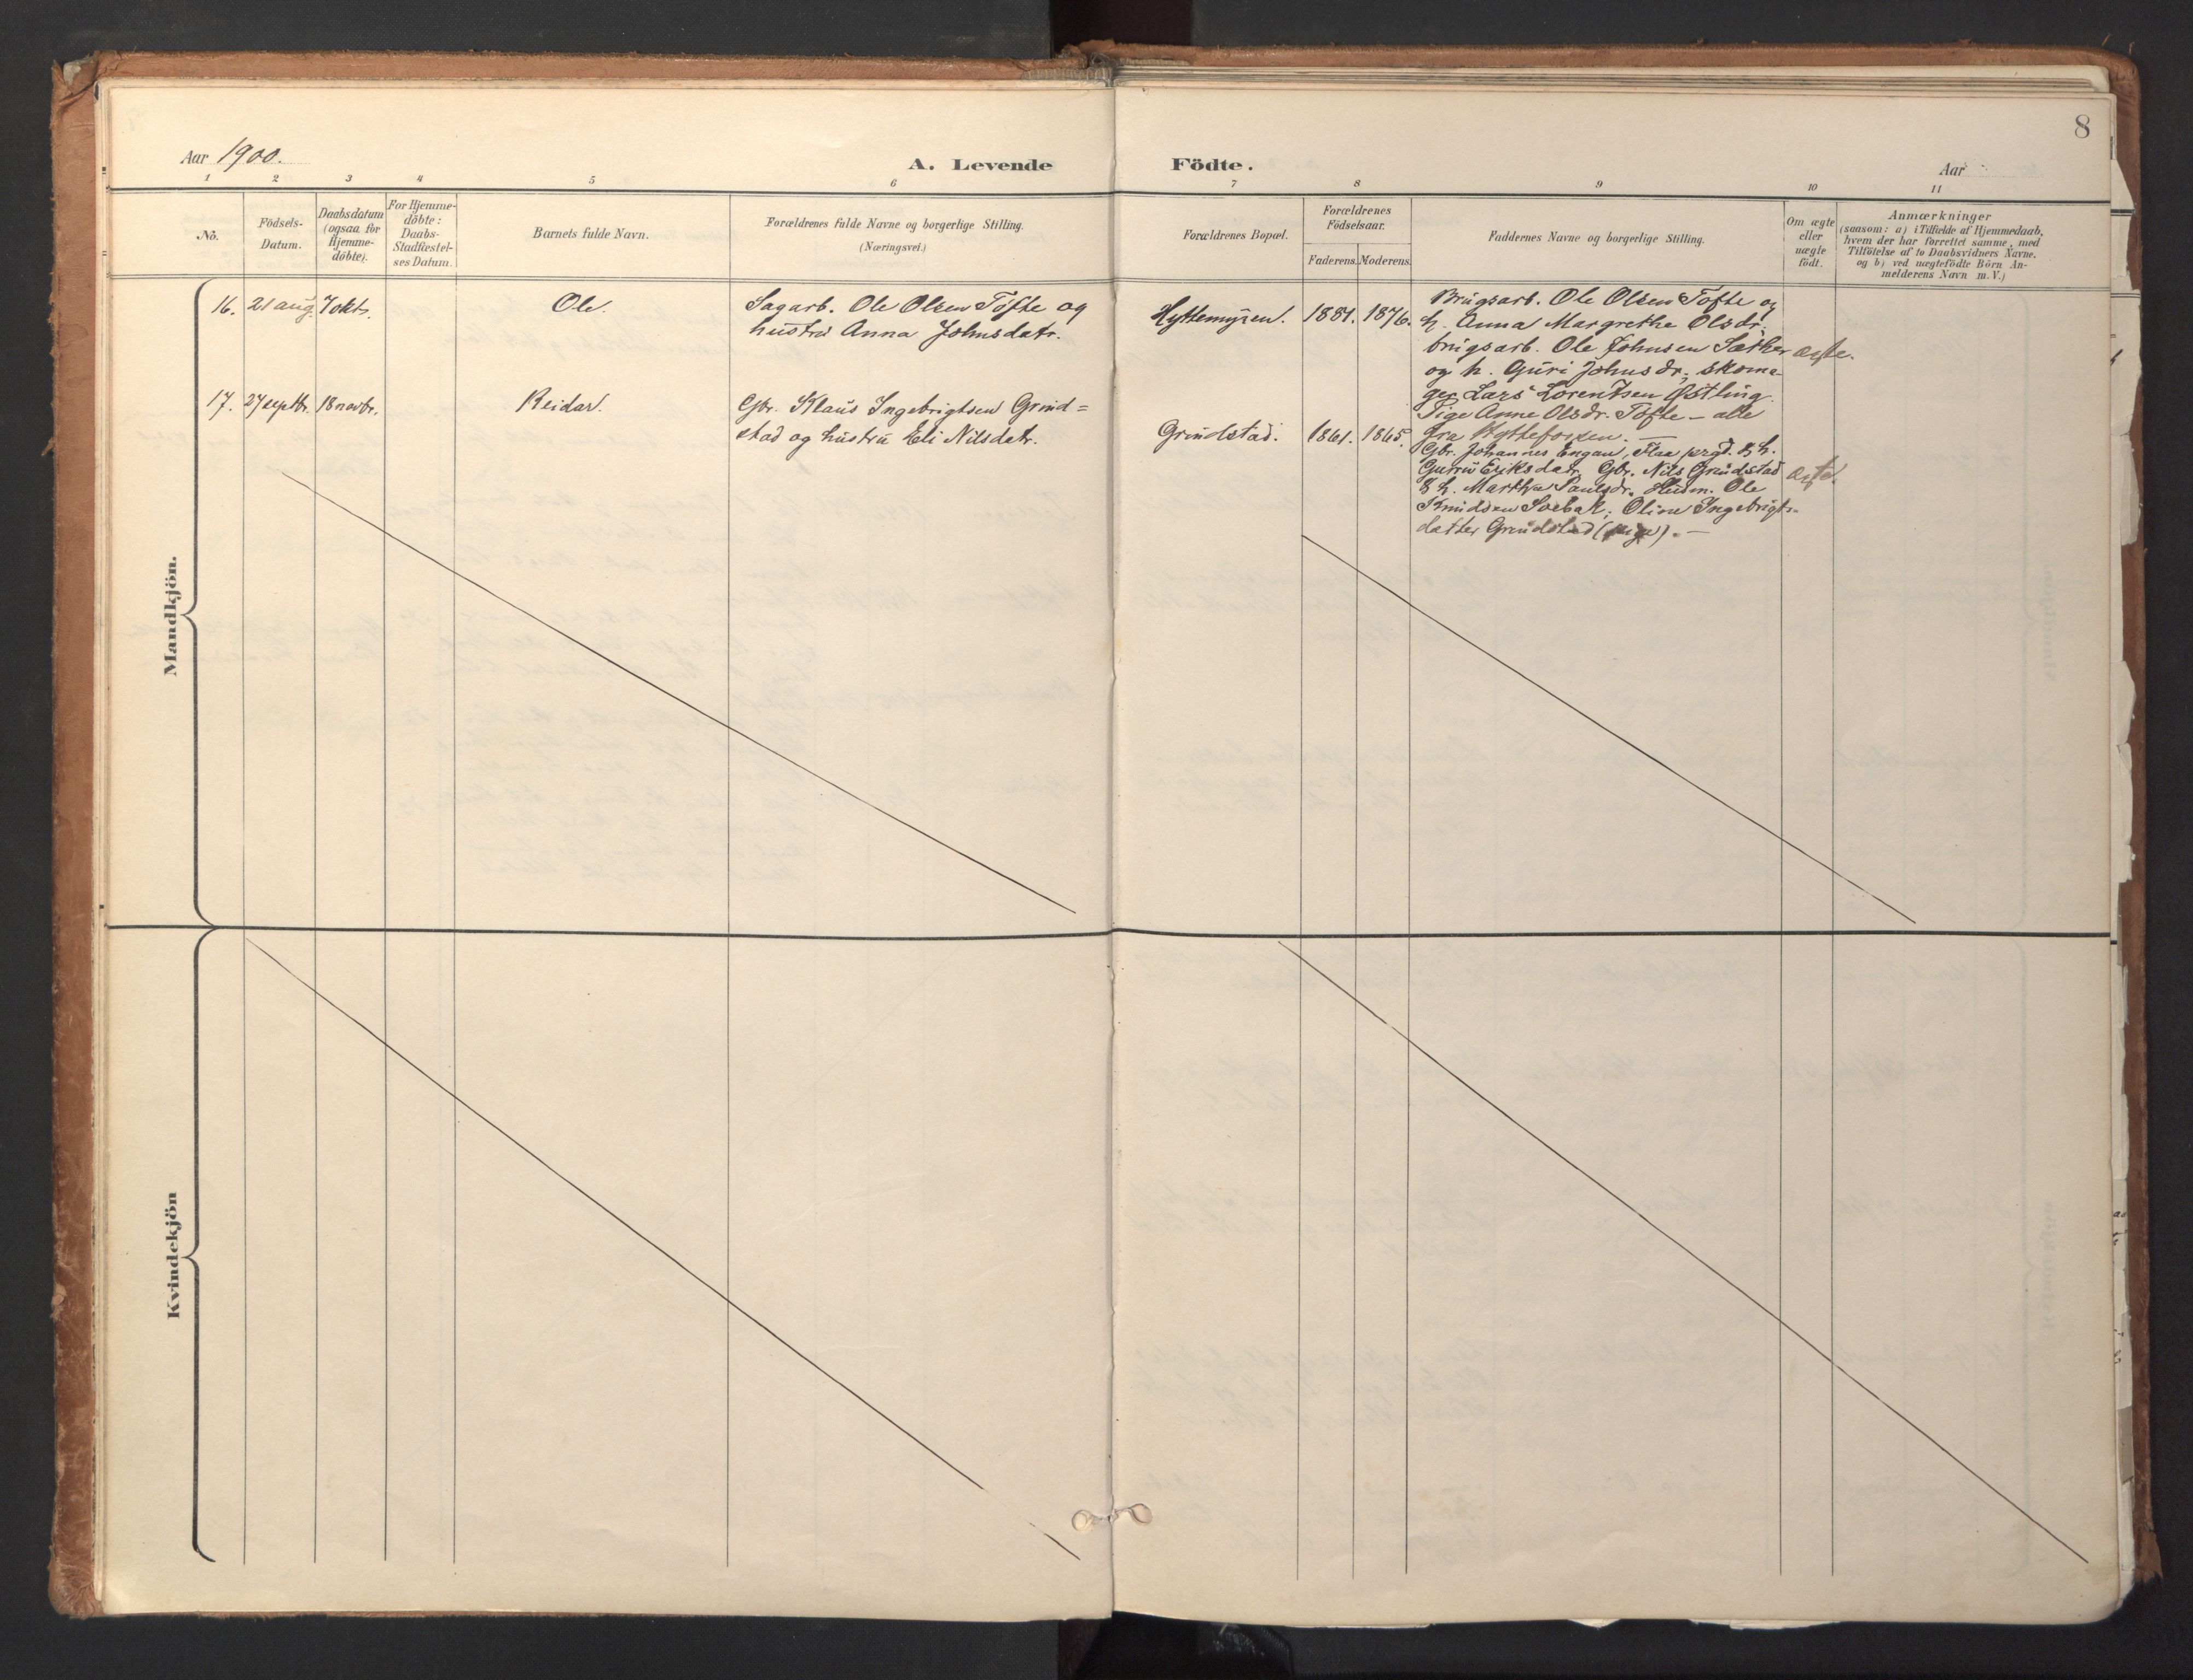 8
Aar 1900.
A. Levende Födte.
Aar
1 2 3 4 5 6 7 8 9 10 11
No.
Födsels-
Datum.
Daabsdatum
(ogsaa for
Hjemme-
döbte).
For Hjemme-
döbte:
Daabs-
Stadfæstel-
ses Datum.
Barnets fulde Navn.
Forældrenes fulde Navne og borgerlige Stilling.
(Næringsvei.)
Forældrenes Bopæl.
Forældrenes
Födselsaar.
Faderens. Moderens.
Faddernes Navne og borgerlige Stilling.
Om ægte
eller
uægte
födt.
Anmærkninger
(saasom: a) i Tilfælde af Hjemmedaab,
hvem der har forrettet samme, med
Tilföielse af to Daabsvidners Navne.
og b) ved uægtefödte Börn An-
melderens Navn m. V.)
Mandkjön.
16. 21 aug. 7 oktr. Ole.
Sagarb. Ole Olsen Tofte og
hustru Anna Johnsdatr.
Hyttemyren. 1881. 1876.
Brugsarb. Ole Olsen Tofte og
h. Anna Margrethe Olsdr.
brugsarb. Ole Johnsen Sæther
og h. Guri Johnsdr., skoma-
ger Lars Lorentsen Østling.
Pige Anne Olsdr. Tofte – alle
fra Hyttefossen. —
ægte.
17. 27 septbr. 18 novbr. Reidar.
Gbr. Klaus Ingebrigtsen Grind=
stad og hustru Eli Nilsdatr.
Grindstad. 1861. 1865.
Gbr. Johannes Engan, Flaa prgd. & h.
Gurru Eriksdatr. Gbr. Nils Grindstad
& h. Martha Paulsdr. Husm. Ole
Knudsen Solbak; Oline Ingebrigts-
datter Grindstad (pige). —
ægte.
Kvindekjön